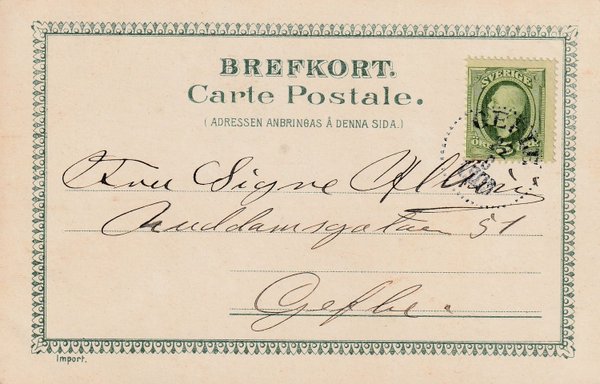 BREFKORT.
Carte Postale.
(ADRESSEN ANBRINGAS Å DENNA SIDA.)
SVERIGE
5
ÖRE
GEFLE
Fru Signe
51
Gefle.
Import.